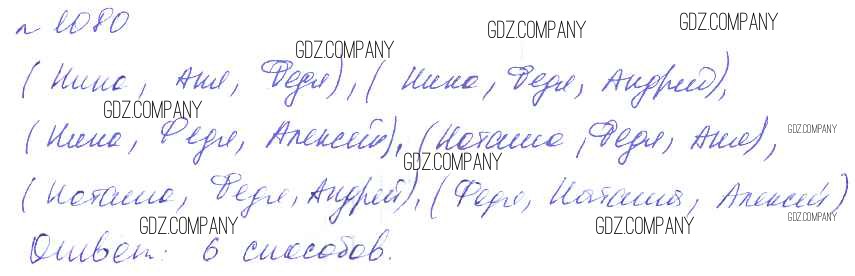 № 1080
GDZ.COMPANY GDZ.COMPANY GDZ.COMPANY
(Нина, Аня, Федя), (Нина, Федя, Андрей),
GDZ.COMPANY
(Нина, Федя, Алексей), (Наташа, Федя, Аня),
GDZ.COMPANY GDZ.COMPANY
(Наташа, Федя, Андрей), (Федя, Наташа, Алексей)
GDZ.COMPANY GDZ.COMPANY GDZ.COMPANY
Ответ: 6 способов.